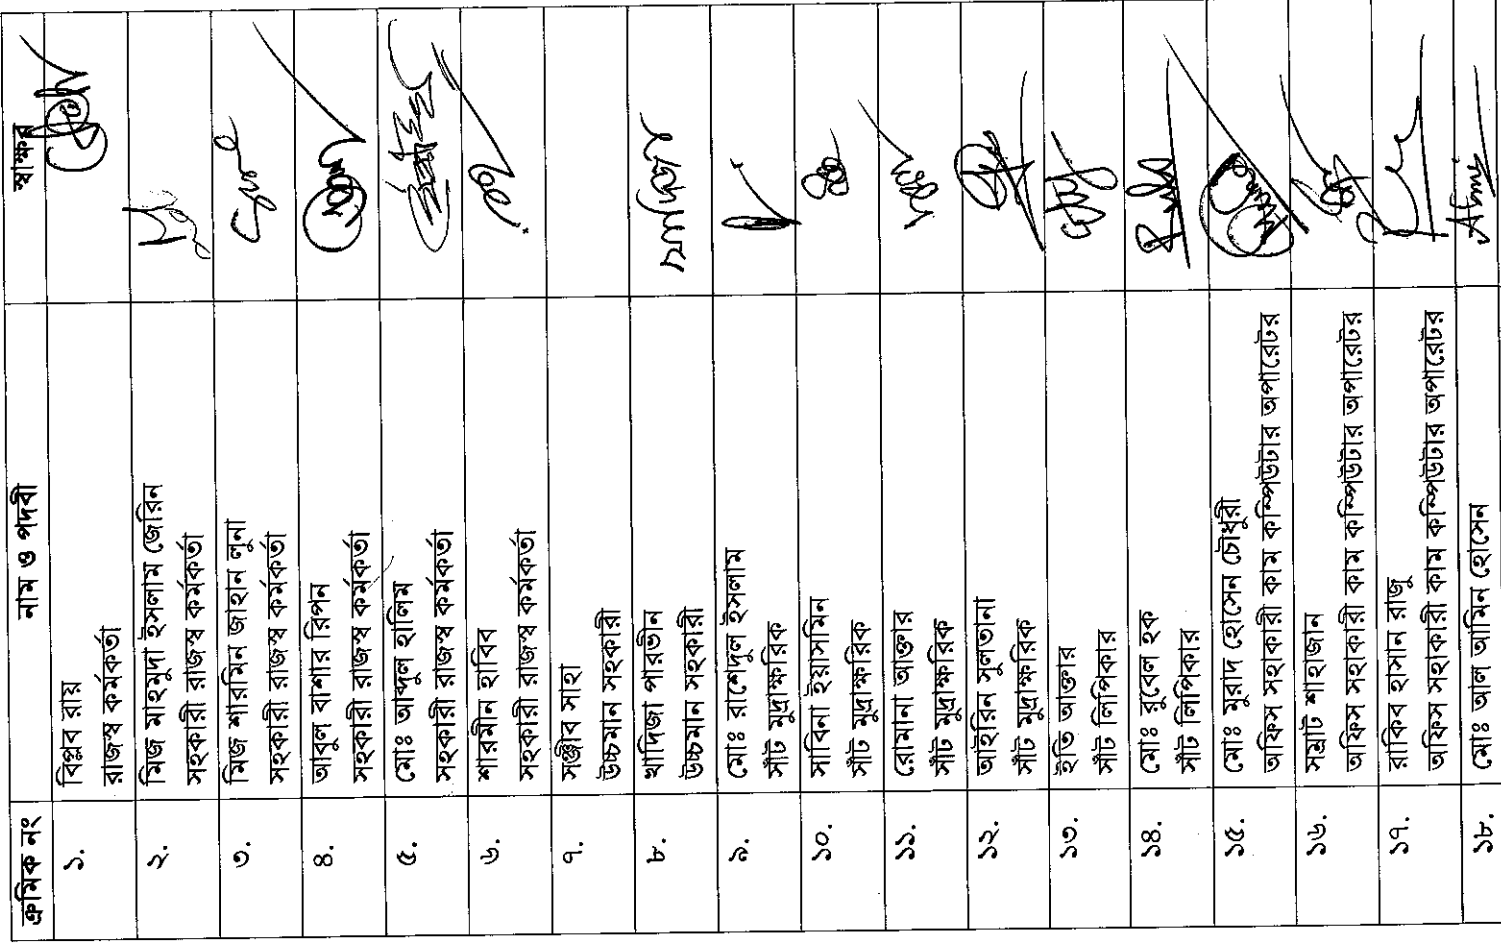 ক্রমিক নং নাম ও পদবী স্বাক্ষর
১. বিপ্লব রায়
রাজস্ব কর্মকর্তা
২. মিজ মাহমুদা ইসলাম জেরিন
সহকারী রাজস্ব কর্মকর্তা
৩. মিজ শারমিন জাহান লুনা
সহকারী রাজস্ব কর্মকর্তা
৪. আবুল বাশার রিপন
সহকারী রাজস্ব কর্মকর্তা
৫. মোঃ আব্দুল হালিম
সহকারী রাজস্ব কর্মকর্তা
৬. শারমীন হাবিব
সহকারী রাজস্ব কর্মকর্তা
৭. সঞ্জীব সাহা
উচ্চমান সহকারী
৮. খাদিজা পারভীন
উচ্চমান সহকারী
৯. মোঃ রাশেদুল ইসলাম
সাঁট মুদ্রাক্ষরিক
১০. সাবিনা ইয়াসমিন
সাঁট মুদ্রাক্ষরিক
১১. রোমানা আক্তার
সাঁট মুদ্রাক্ষরিক
১২. আইরিন সুলতানা
সাঁট মুদ্রাক্ষরিক
১৩. ইতি আক্তার
সাঁট লিপিকার
১৪. মোঃ রুবেল হক
সাঁট লিপিকার
১৫. মোঃ মুরাদ হোসেন চৌধুরী
অফিস সহাকারী কাম কম্পিউটার অপারেটর
১৬. সম্রাট শাহাজান
অফিস সহাকারী কাম কম্পিউটার অপারেটর
১৭. রাকিব হাসান রাজু
অফিস সহাকারী কাম কম্পিউটার অপারেটর
১৮. মোঃ আল আমিন হোসেন